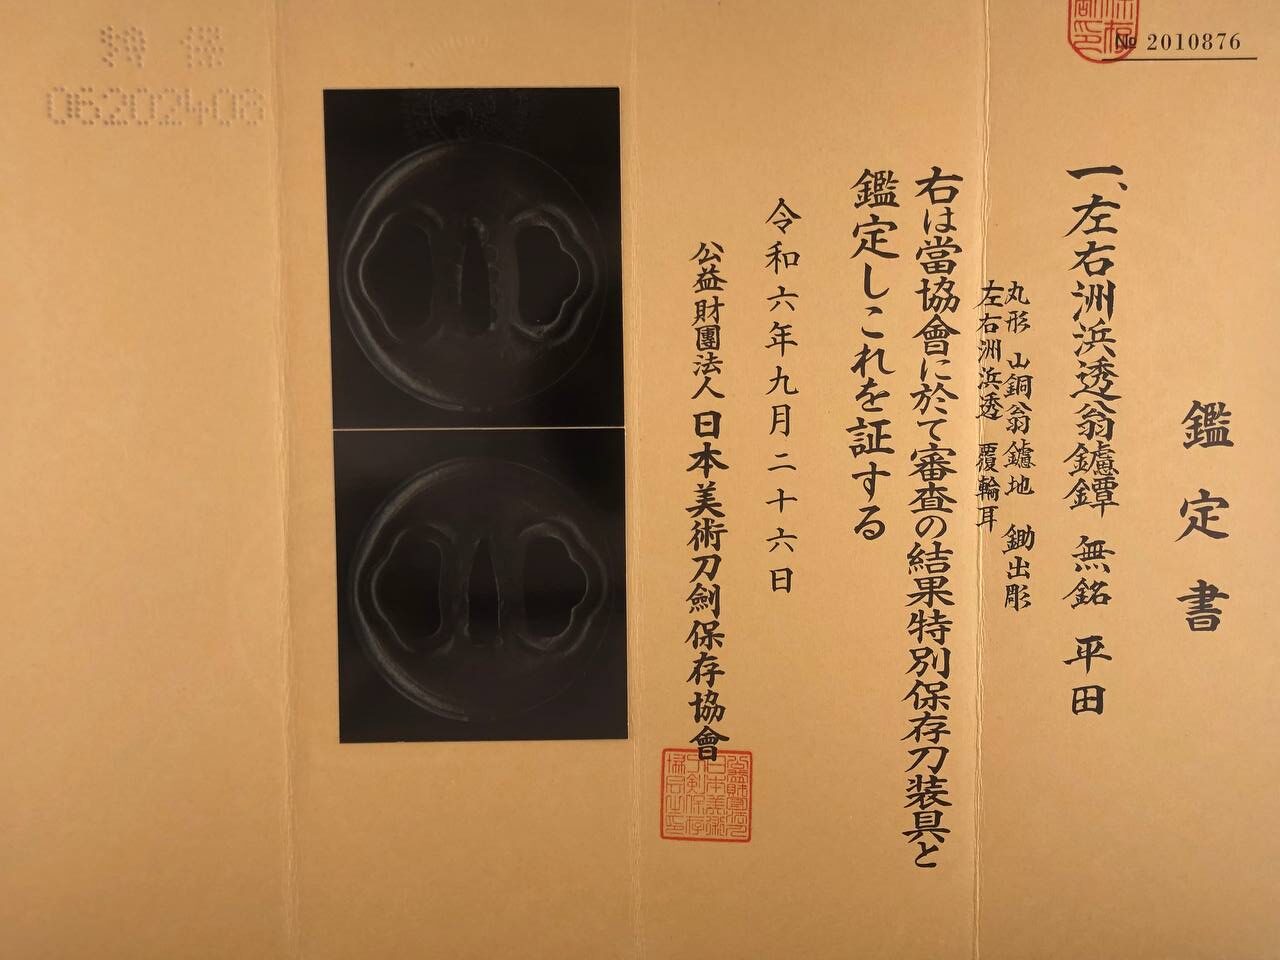 № 2010876
鑑定書
一、左右洲浜透翁鑢鐔 無銘 平田
丸形 山銅翁鑢地 鋤出彫
左右洲浜透 覆輪耳
右は當協會に於て審査の結果特別保存刀装具と
鑑定しこれを証する
令和六年九月二十六日
公益財團法人 日本美術刀劍保存協會
特保
06202408